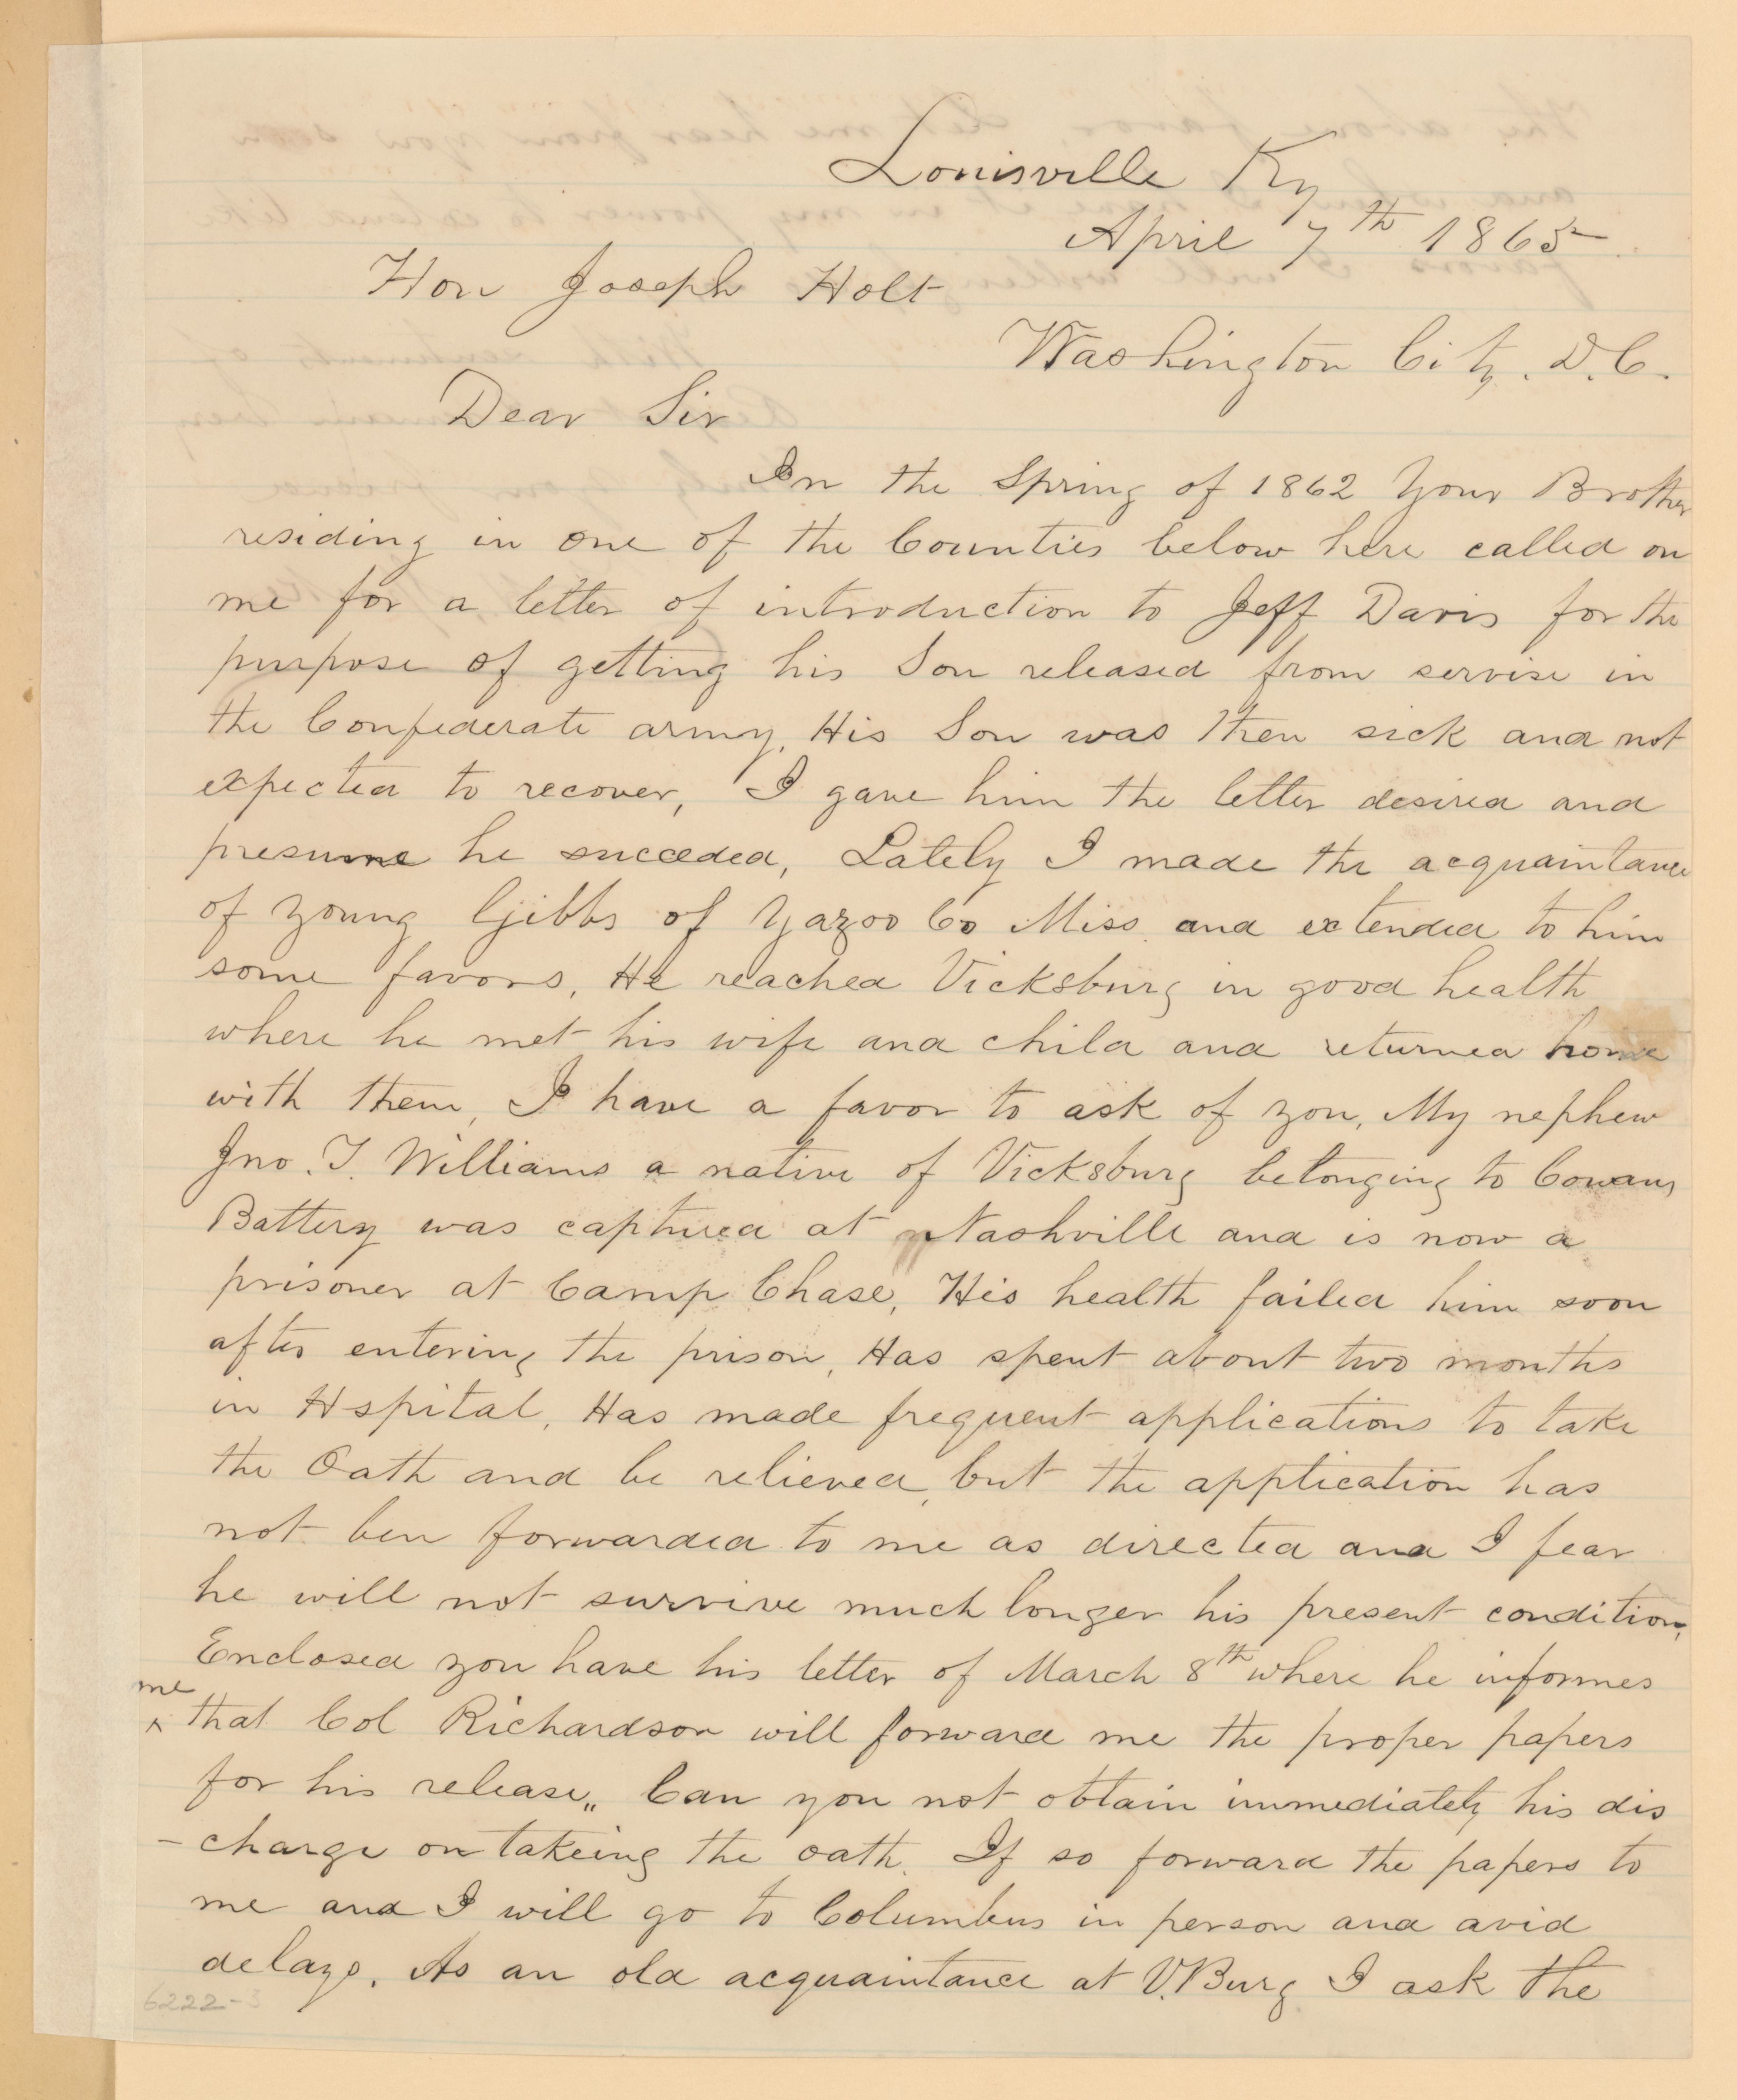 Louisville Ky
April 7th 1865
Hon Joseph Holt
Washington City. D.C.
Dear Sir
In the Spring of 1862 Your Brother
residing in one of the Counties below here called on
me for a letter of introduction to Jeff Davis for the
purpose of getting his Son released from servise in
the Confederate army, His Son was then sick and not
expected to recover, I gave him the letter desired and
presume he succeded, Lately I made the acquaintance
of young Gibbs of Yazoo Co Miss. and extended to him
some favors, He reached Vicksburg in good health
where he met his wife and child and returned home
with them, I have a favor to ask of you, My nephew
Jno. T. Williams a native of Vicksburg belonging to Cowans
Battery was captured at Nashville and is now a
prisoner at Camp Chase, His health failed him soon
after entering the prison, Has spent about two months
in Hspital, Has made frequent applications to take
the Oath and be relieved, but the application has
not ben forwarded to me as directed and I fear
he will not survive much longer his present condition,
Enclosed you have his letter of March 8th where he informes
me
^ that Col Richardson will forward me the proper papers
for his release,, Can you not obtain immediately his dis
- charge on takeing the oath. If so forward the papers to
me and I will go to Columbus in person and avid
delays. As an old acquaintance at V.Burg I ask the
6222-3